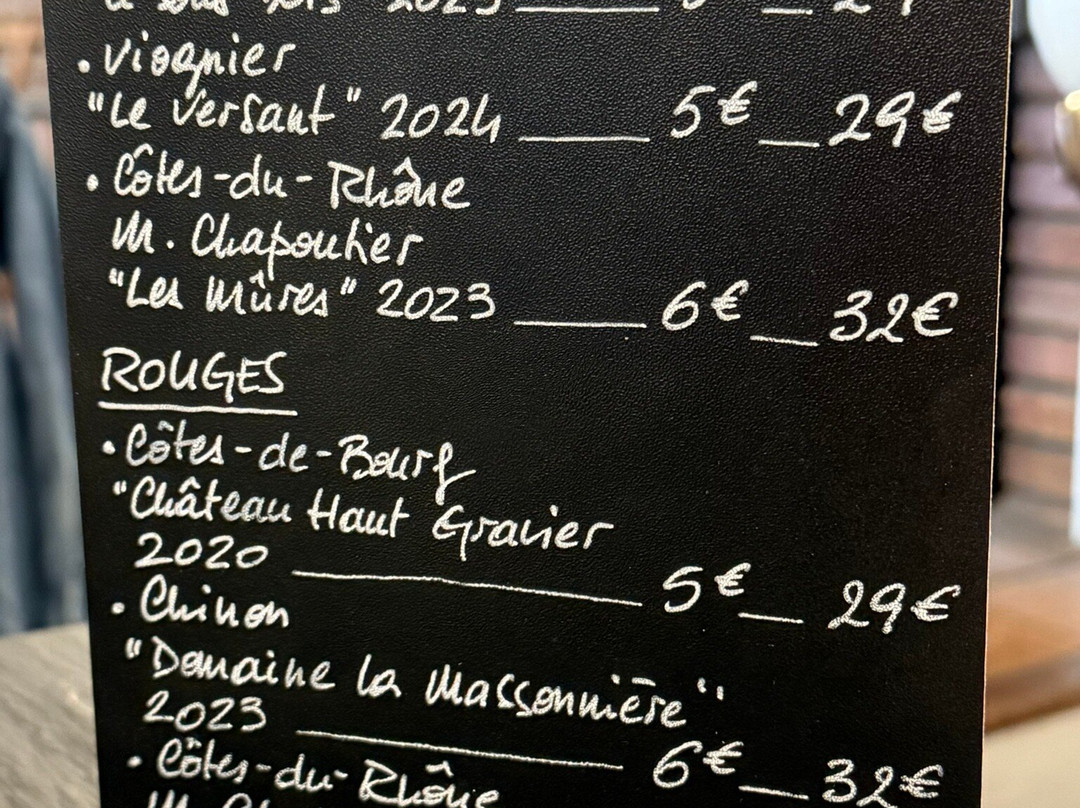 2023
• Viognier
"Le Versant" 2024 ____ 5€ __ 29€
• Côtes-du-Rhône
M. Chapoutier
"Les Mûres" 2023 ____ 6€ __ 32€
ROUGES
• Côtes-de-Bourg
"Château Haut Gravier
2020 ____ 5€ __ 29€
• Chinon
"Domaine la Massonnière"
2023 ____ 6€ __ 32€
• Côtes-du-Rhône